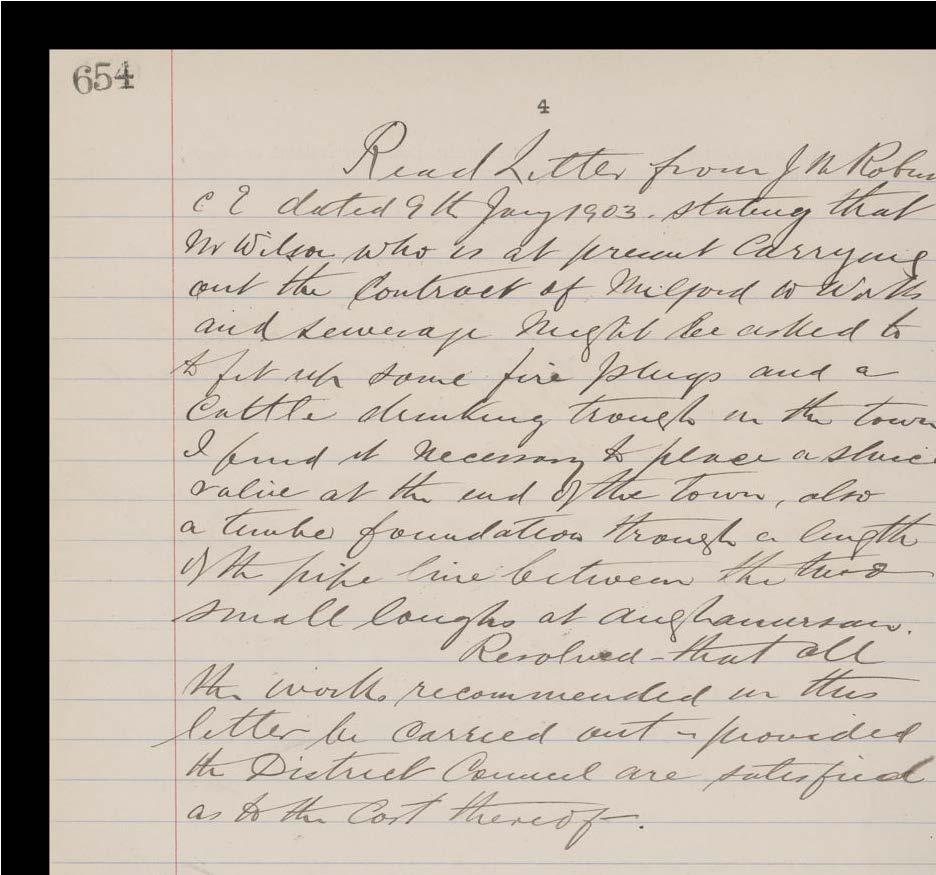 654
4
Read Letter from J W Robin
C E dated 9th Jany 1903. stating that
Mr Wilson who is at present Carrying
out the Contract of Milford W Works
and sewerage might be asked to
to fit up some fire plugs and a
Cattle drinking trough in the town
I find it necessary to place a sluice
valve at the end of the town, also
a timber foundation through a length
of the pipe line between the two
small loughs at
Resolved - that all
the works recommended in this
letter be carried out - provided
the District Council are satisfied
as to the Cost thereof.